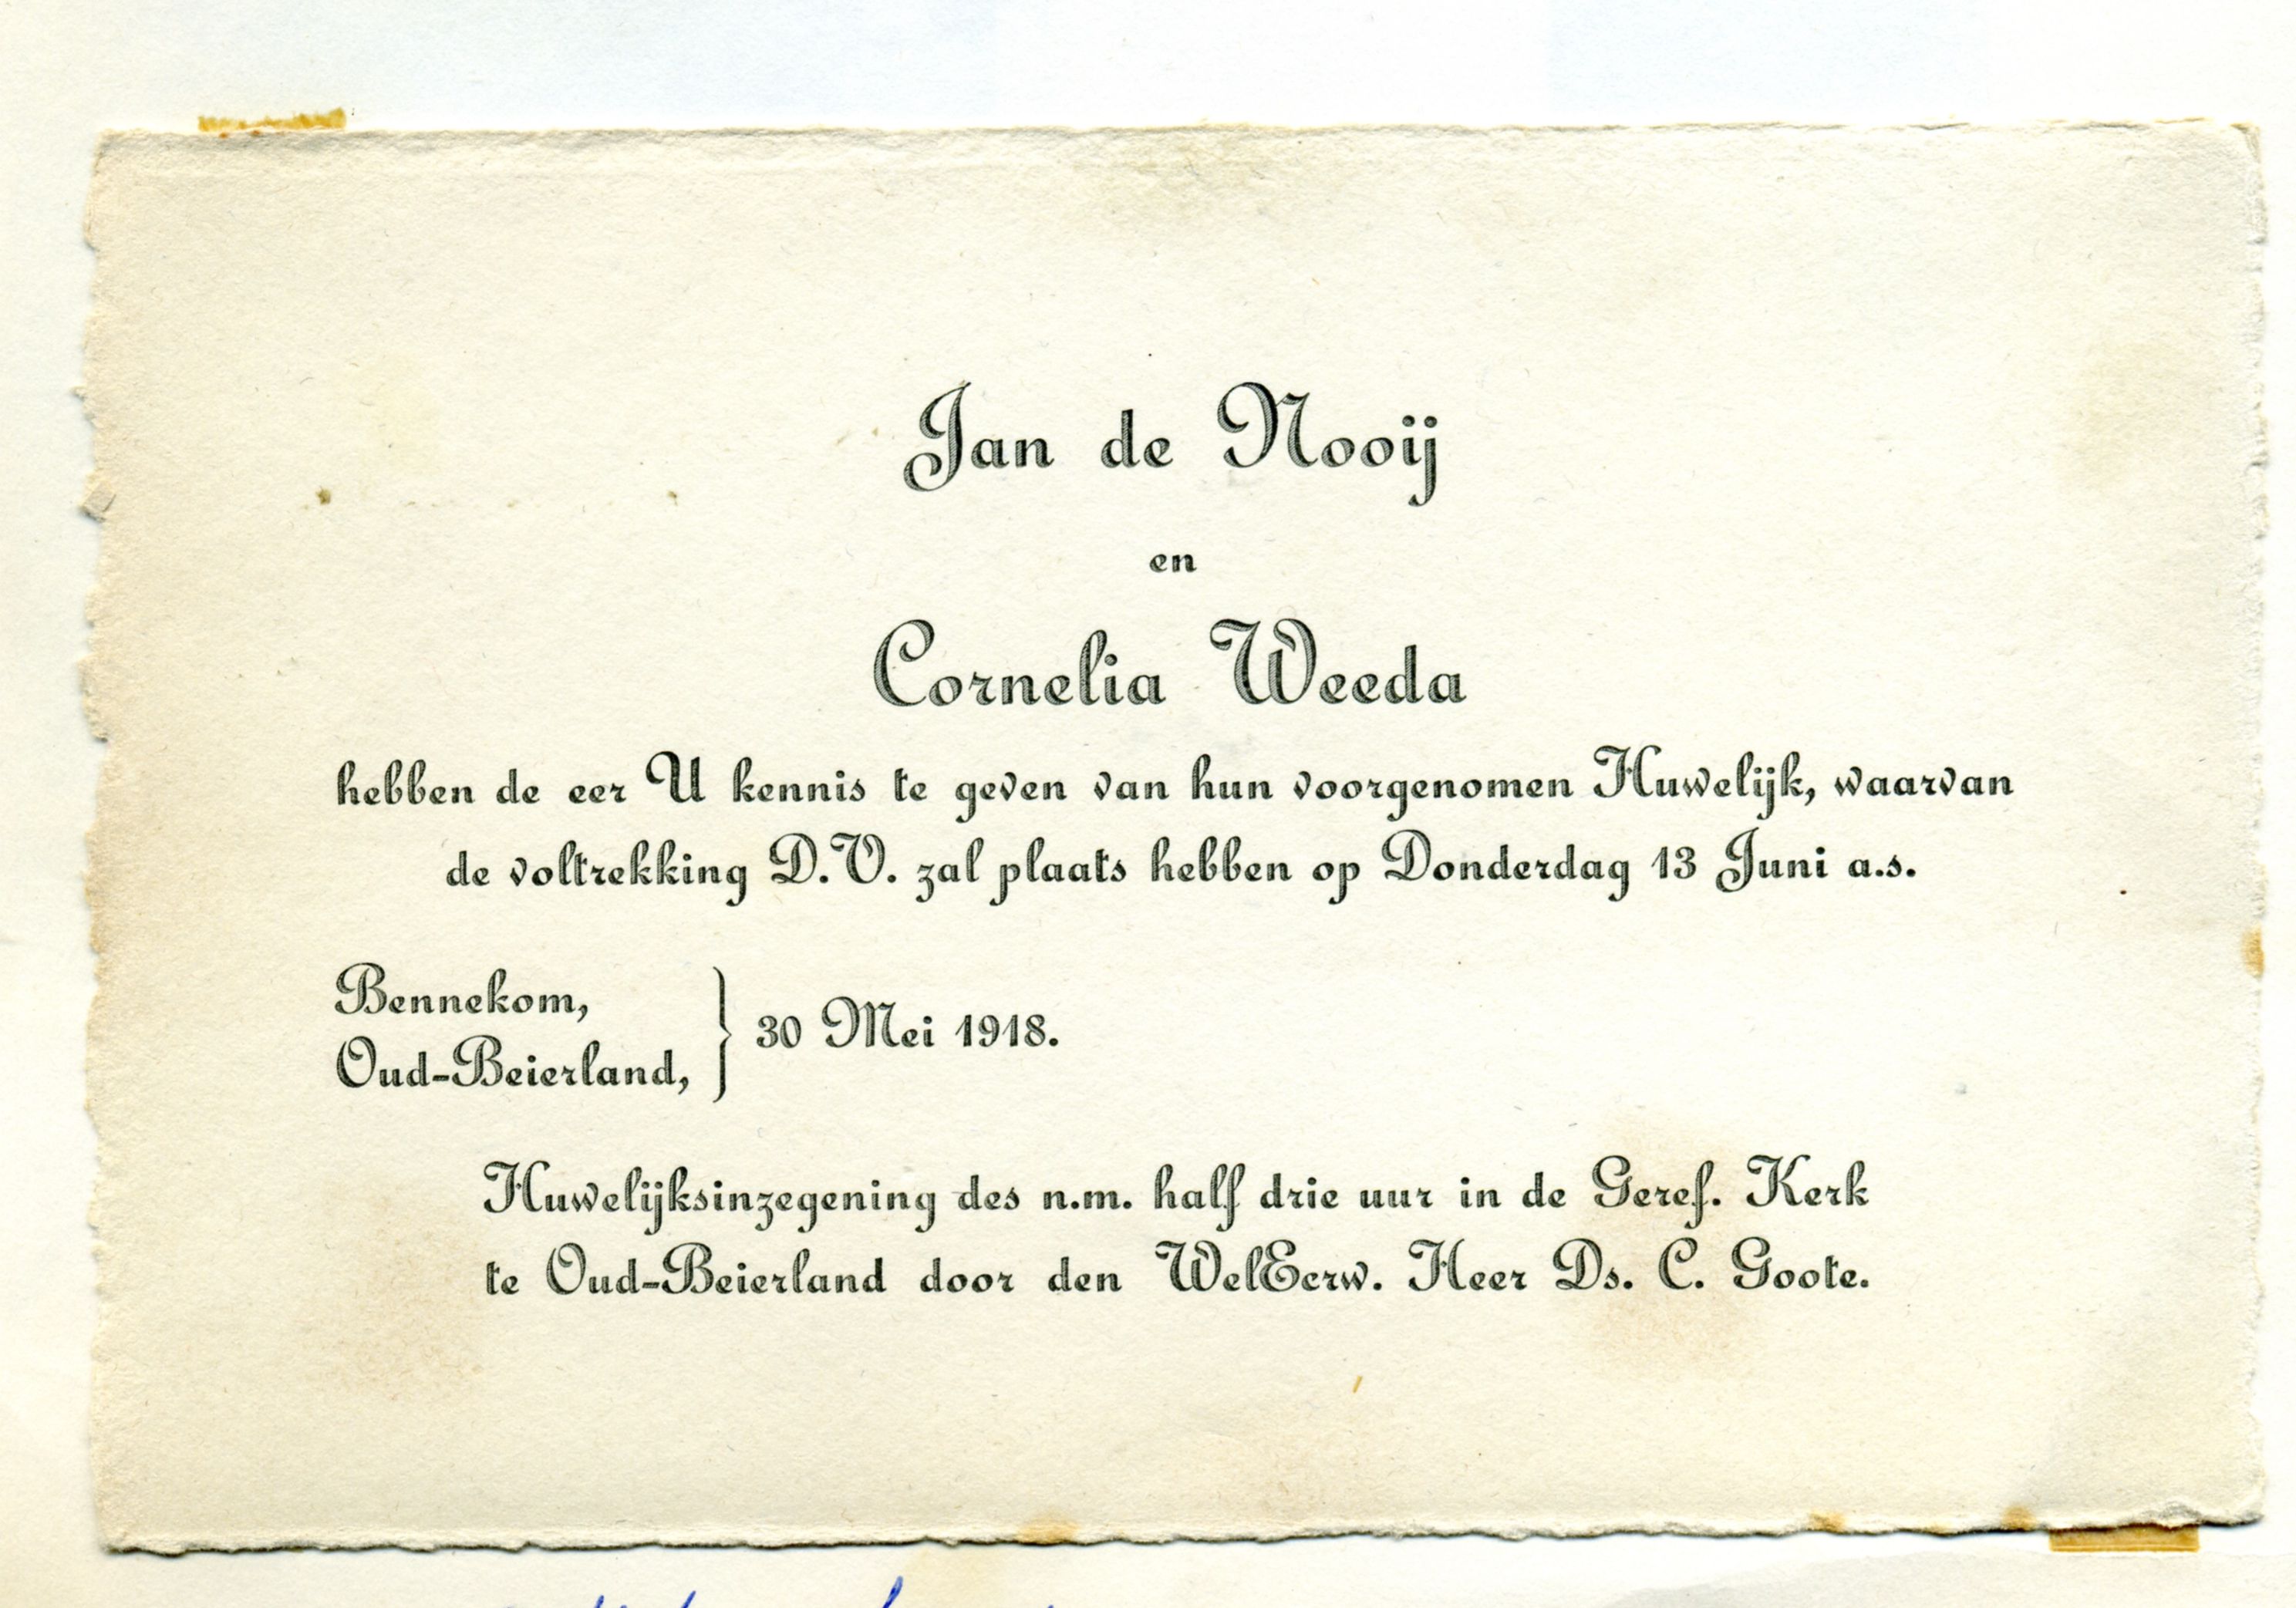 Jan de Nooij
en
Cornelia Weeda
hebben de eer U kennis te geven van hun voorgenomen Huwelijk, waarvan
de voltrekking D.V. zal plaats hebben op Donderdag 13 Juni a.s.
Bennekom,
Oud-Beierland,
} 30 Mei 1918.
Huwelijksinzegening des n.m. half drie uur in de Geref. Kerk
te Oud-Beierland door den WelEerw. Heer Ds. C. Goote.